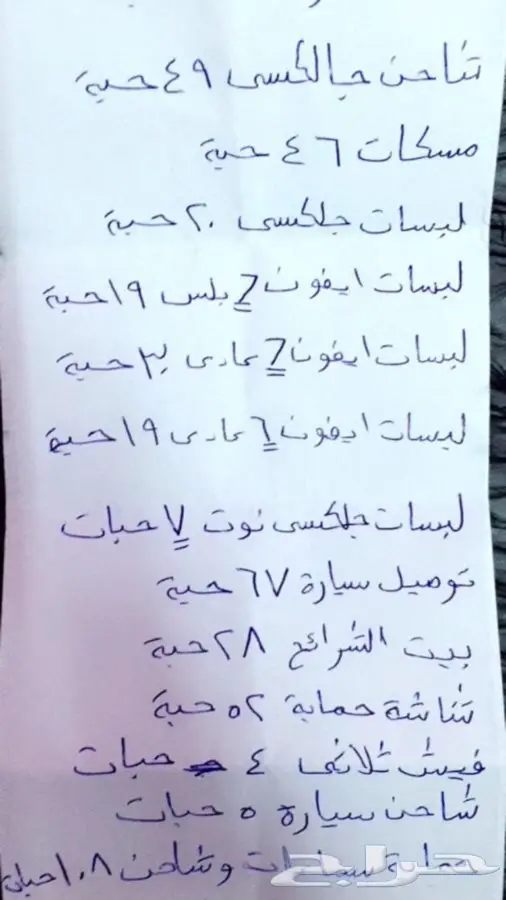 شاحن جالكسى ٤٩ حبة
مسكات ٤٦ حبة
لبسات جلكسى ٢٠ حبة
لبسات ايفون 7 بلس ١٩ حبة
لبسات ايفون 7 عادى ٣٠ حبة
لبسات ايفون ٦ عادى ١٩ حبة
لبسات جلكسى نوت ٧ حبات
توصيل سيارة ٦٧ حبة
بيت الشرائح ٢٨ حبة
شاشة حماية ٥٢ حبة
فيش ثلاثى ٤ حبات
شاحن سيارة ٥ حبات
حماية سماعات وشاحن ١٠٨ حبات
حراج